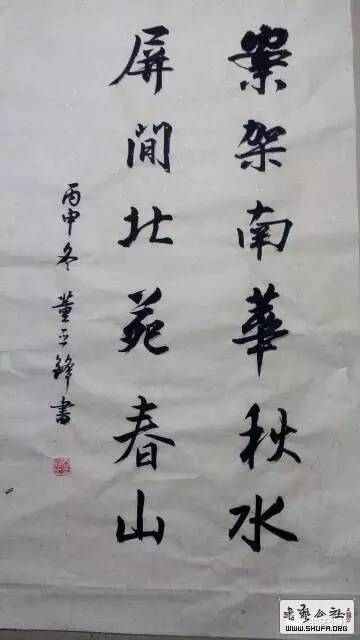 案架南華秋水
屏間北苑春山
丙申冬 董正鋒書
書藝公社
WWW.SHUFA.ORG